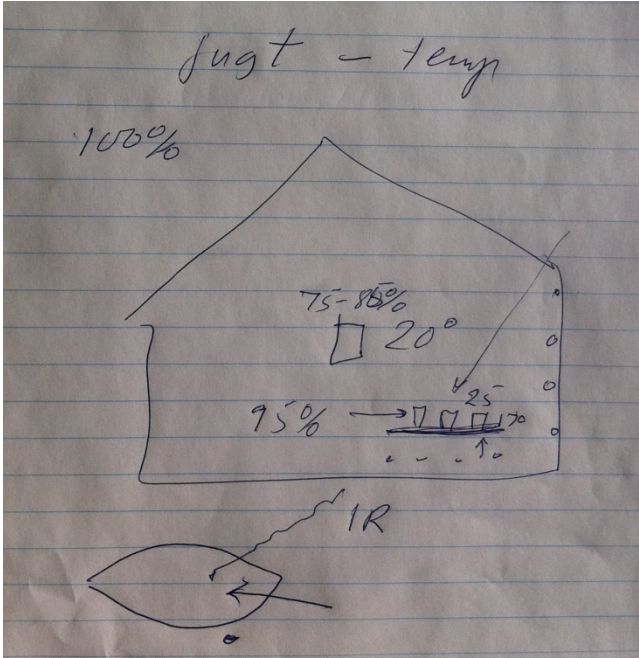 fugt - temp
100%
75-85%
20°
25
95%
IR